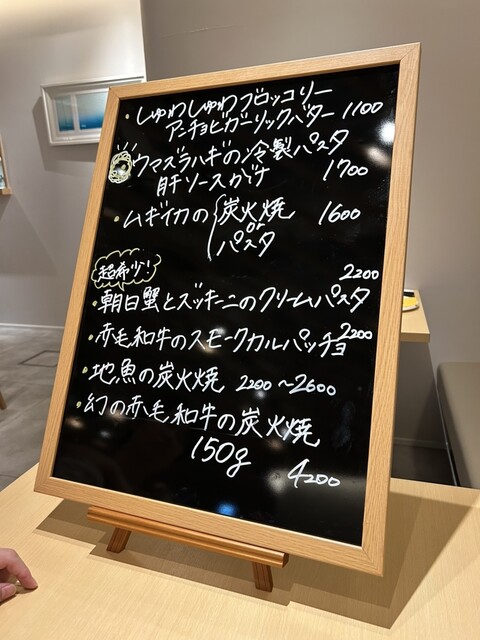 ・しゅわしゅわブロッコリー
アンチョビガーリックバター 1100
ウマズラハギの冷製パスタ
肝ソースがけ 1700
・ムギイカの 炭火焼 1600
or
パスタ
超希少！ 2200
・朝日蟹とズッキーニのクリームパスタ
・赤毛和牛のスモークカルパッチョ 2200
・地魚の炭火焼 2200〜2600
・幻の赤毛和牛の炭火焼
150g 4200